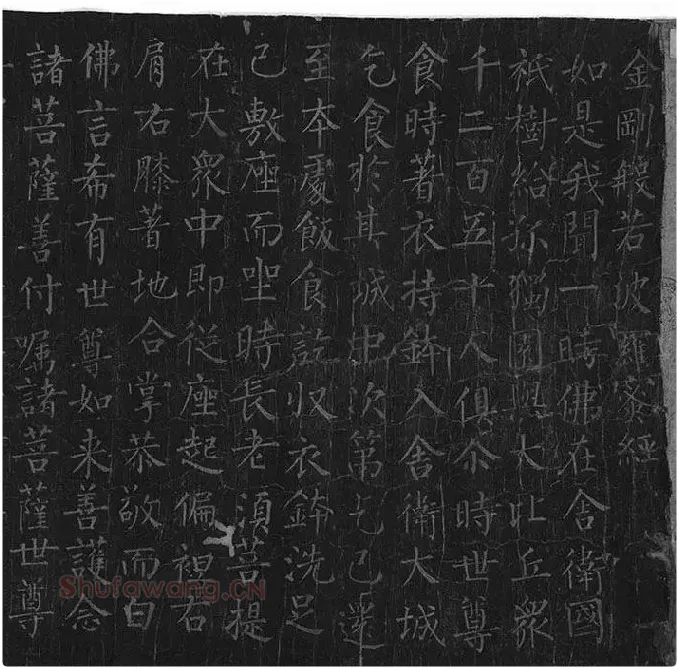 金剛般若波羅蜜經
如是我聞一時佛在舍衛國
祇樹給孤獨園與大比丘衆
千二百五十人俱尒時世尊
食時著衣持鉢入舍衛大城
乞食於其城中次第乞已還
至夲處飯食訖收衣鉢洗足
已敷座而坐時長老須菩提
在大衆中即從座起偏袒右
肩右膝著地合掌恭敬而白
佛言希有世尊如来善護念
諸菩薩善付嘱諸菩薩世尊
Shufawang.CN